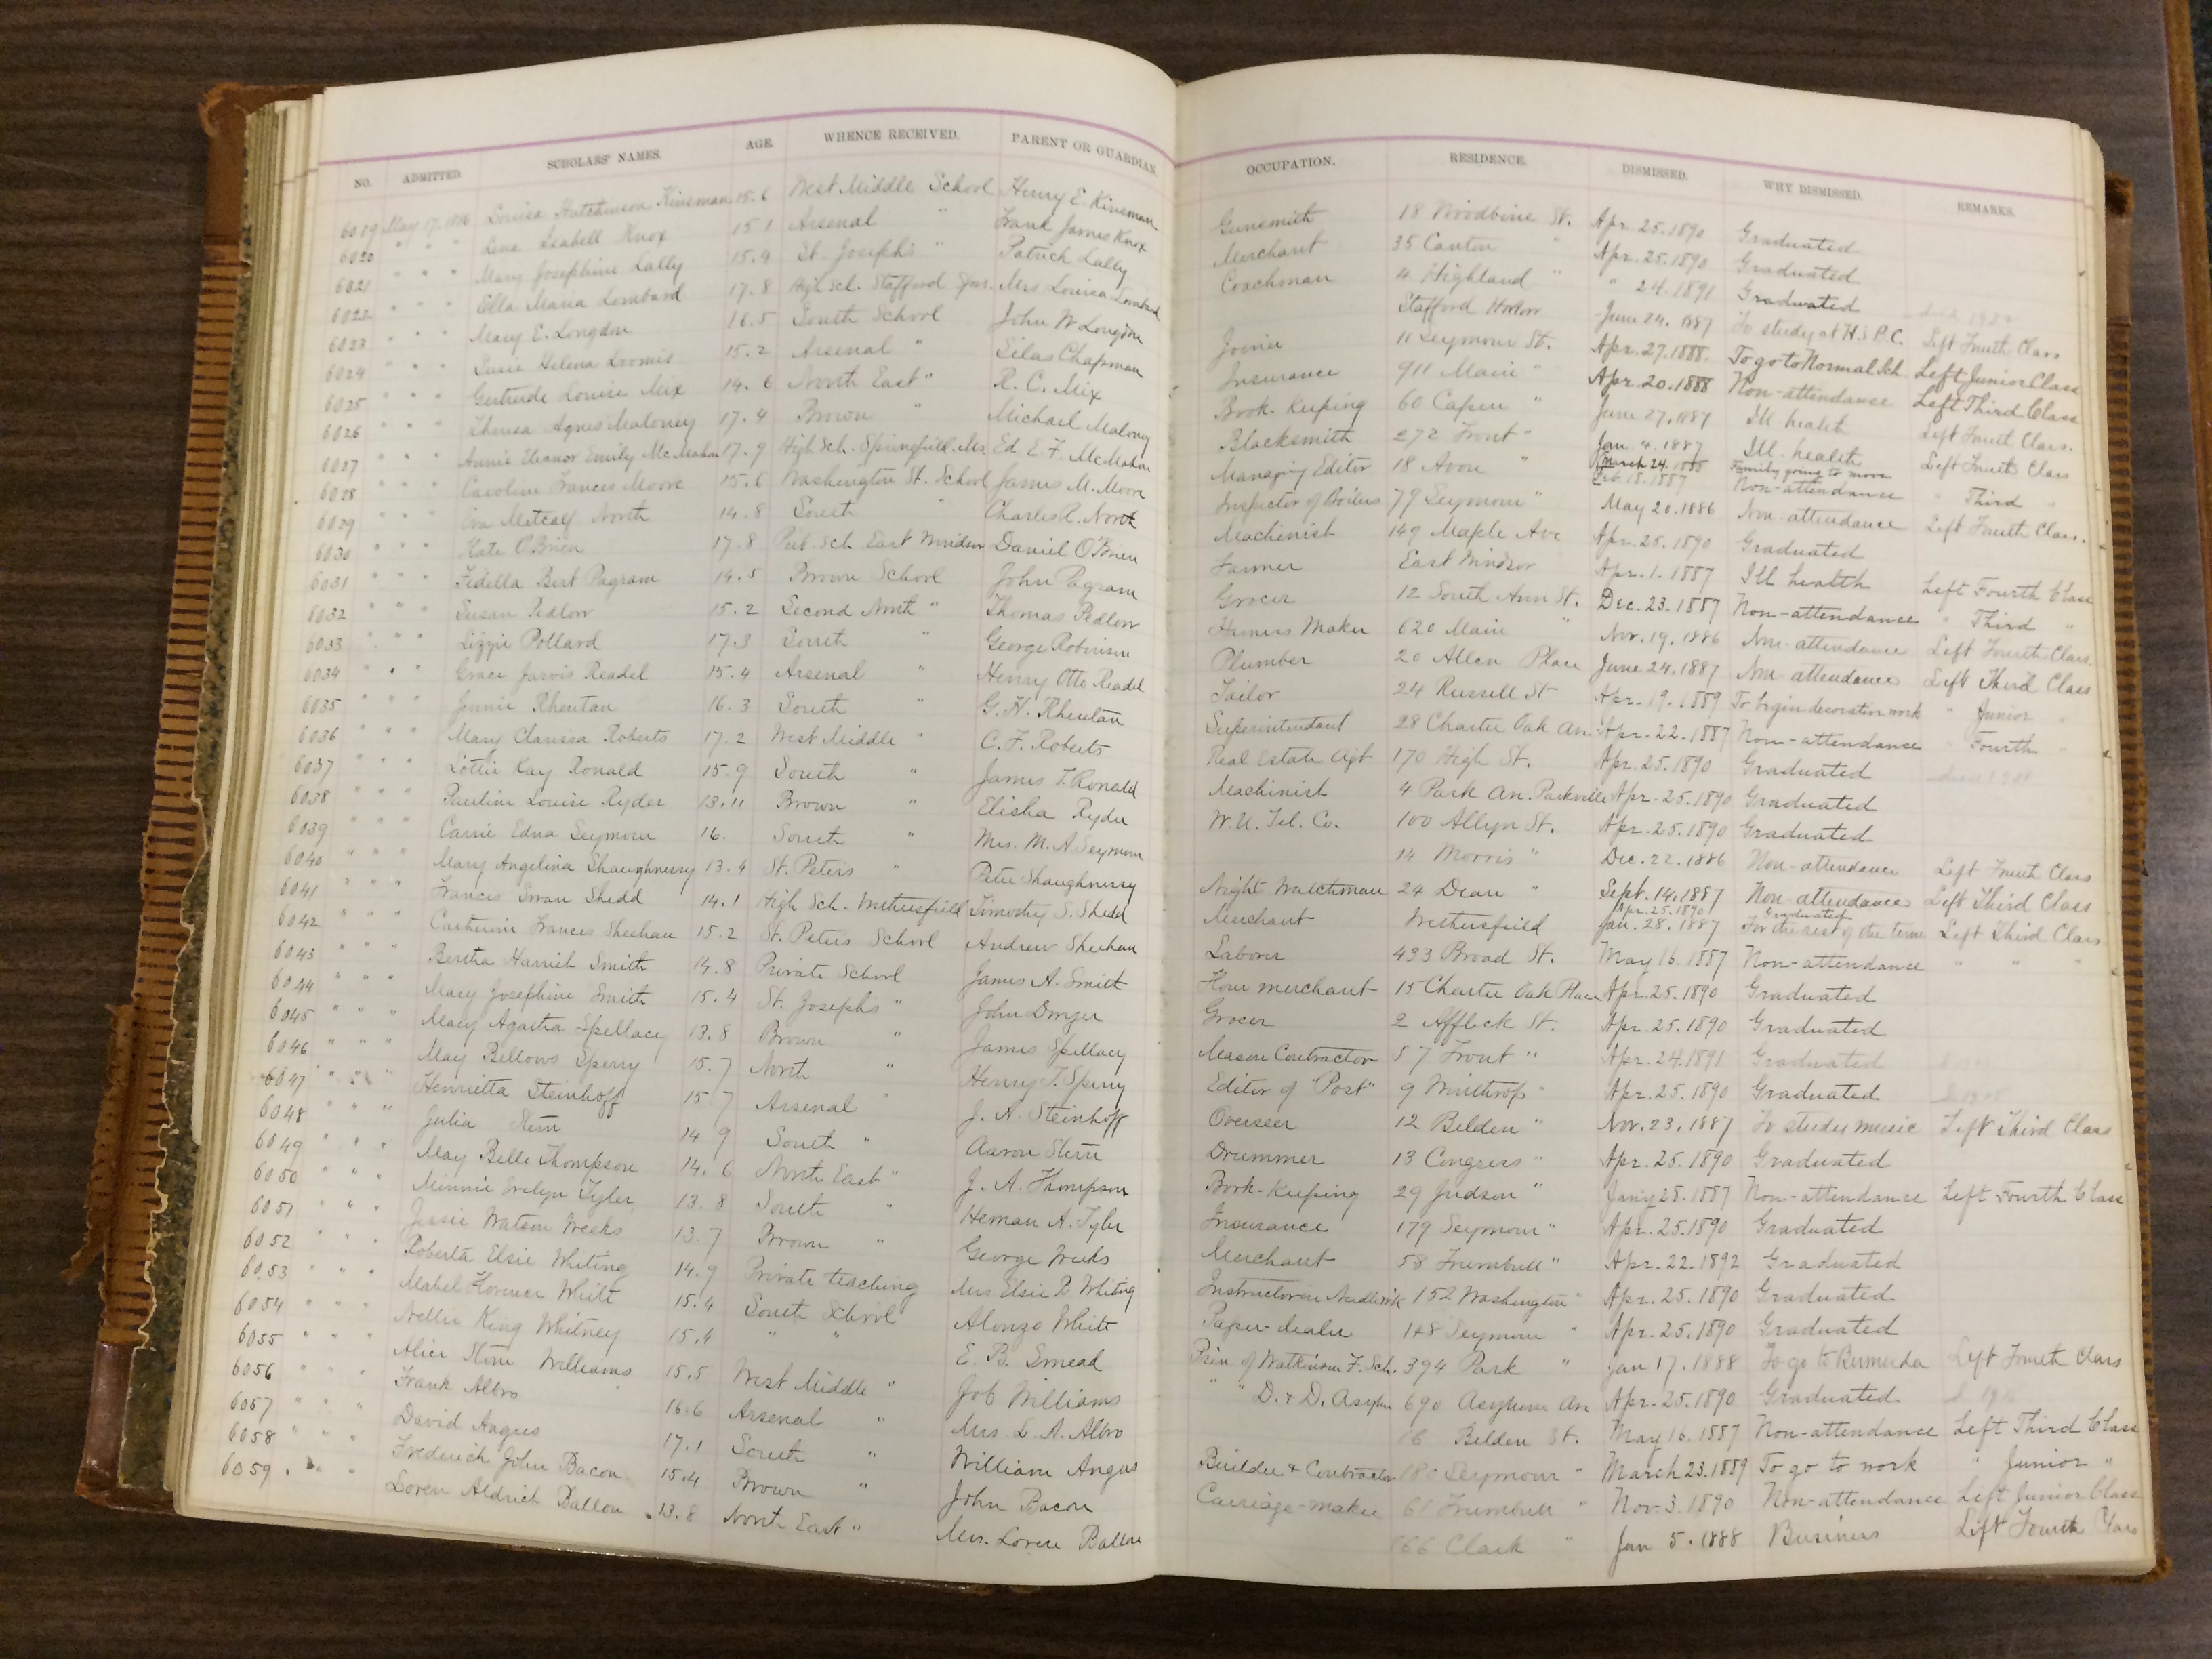 NO. ADMITTED. SCHOLARS' NAMES. AGE. WHENCE RECEIVED. PARENT OR GUARDIAN. OCCUPATION. RESIDENCE. DISMISSED. WHY DISMISSED. REMARKS.
6019 May 17. 1886 Louisa Hutchinson Kinsman 15.6 West Middle School Henry E. Kinsman Gunsmith 18 Woodbine St. Apr. 25. 1890 Graduated
6020 " " " Lena Isabell Knox 15 1 Arsenal " Frank James Knox Merchant 35 Canton " Apr. 25. 1890 Graduated
6021 " " " Mary Josephine Lally 15.9 St. Joseph's " Patrick Lally Coachman 4 Highland " " 24. 1891 Graduated
6022 " " " Ella Maria Lombard 17.8 High Sch. Stafford Mrs Louisa Lombard Stafford June 24. 1887 To study at H.S. Left Fourth Class
6023 " " " Mary E. Longdon 16.5 South School John W Longdon Joiner 11 Seymour St. Apr. 27. 1888. To go to Normal Sch. Left Junior Class
6024 " " " Susie Helena Loomis 15.2 Arsenal " Silas Chapman Insurance 911 Main " Apr. 20. 1888 Non-attendance Left Third Class
6025 " " " Gertrude Louise Mix 14.6 North East " R. C. Mix Book-Keeping 60 Capen " June 27. 1887 Ill health Left Fourth Class.
6026 " " " Theresa Agnes Maloney 17.4 Brown " Michael Maloney Blacksmith 272 Front " Jan. 4. 1887 Ill. health Left Fourth Class
6027 " " " Annie Eleanor Emily McMahon 17.9 High Sch. Springfield. Ms. Ed. E. F. McMahon Managing Editor 18 Avon " March 24. 1888 Family going to move
6028 " " " Caroline Frances Moore 15.6 Washington St. School James M. Moore Inspector of Boilers 79 Seymour " Feb. 18. 1887 Non-attendance " Third "
6029 " " " Eva Metcalf North 14.8 South " Charles R. North Machinist 149 Maple Ave May 20. 1886 Non-attendance Left Fourth Class.
6030 " " " Kate O'Brien 17.8 Pub. Sch East Windsor Daniel O'Brien Farmer East Windsor Apr. 25. 1890 Graduated
6031 " " " Fidella Bert Pagram 14.5 Brown School John Pagram Grocer 12 South Ann St. Apr. 1. 1887 Ill health Left Fourth Class
6032 " " " Susan Pedlow 15.2 Second North " Thomas Pedlow Harness Maker 620 Main " Dec. 23. 1887 Non-attendance " Third "
6033 " " " Lizzie Pollard 17.3 South " George Robinson Plumber 20 Allen Place Nov. 19. 1886 Non-attendance Left Fourth Class.
6034 " " " Grace Jarvis Readel 15.4 Arsenal " Henry Otto Readel Tailor 24 Russell St June 24. 1887 Non-attendance Left Third Class
6035 " " " Junie Rheutan 16.3 South " G. H. Rheutan Superintendant 28 Charter Oak Av. Apr. 19. 1889 To begin decorative work " Junior "
6036 " " " Mary Clarissa Roberts 17.2 West Middle " C. F. Roberts Real Estate Agt 170 High St. Apr. 22. 1887 Non-attendance " Fourth "
6037 " " " Lottie Kay Ronald 15.9 South " James T. Ronald Machinist 4 Park Av. Parkville Apr. 25. 1890 Graduated
6038 " " " Pauline Louise Ryder 13.11 Brown " Elisha Ryder W. U. Tel. Co. 100 Allyn St. Apr. 25. 1890 Graduated
6039 " " " Carrie Edna Seymour 16. South " Mrs. M. A. Seymour 14 Morris " Apr. 25. 1890 Graduated
6040 " " " Mary Angelina Shaughnessy 13.4 St. Peters " Peter Shaughnessy Night Watchman 24 Dean " Dec. 22. 1886 Non-attendance Left Fourth Class
6041 " " " Francis Swan Shedd 14.1 High Sch. Wethersfield Timothy S. Shedd Merchant Wethersfield Sept. 14. 1887 Non-attendance Left Third Class
6042 " " " Catherine Frances Sheehan 15.2 St. Peters School Andrew Sheehan Laborer 433 Broad St. Apr. 25. 1890 Graduated Jan. 28. 1887 For the rest of the term Left Third Class
6043 " " " Bertha Harriet Smith 14.8 Private School James A. Smith Flour merchant 15 Charter Oak Place May 16. 1887 Non-attendance " " "
6044 " " " Mary Josephine Smith 15.4 St. Joseph's " John Dwyer Grocer 2 Affleck St. Apr. 25. 1890 Graduated
6045 " " " Mary Agatha Spellacy 13.8 Brown " James Spellacy Mason Contractor 57 Front " Apr. 25. 1890 Graduated
6046 " " " May Bellows Sperry 15.7 North " Henry T. Sperry Editor of "Post" 9 Winthrop " Apr. 24. 1891 Graduated
6047 " " " Henrietta Steinhoff 15 7 Arsenal " J. A. Steinhoff Overseer 12 Belden " Apr. 25. 1890 Graduated
6048 " " " Julia Stern 14 9 South " Aaron Stern Drummer 13 Congress " Nov. 23. 1887 To study music Left Third Class
6049 " " " May Belle Thompson 14.6 North East " J. A. Thompson Book-Keeping 29 Judson " Apr. 25. 1890 Graduated
6050 " " " Minnie Evelyn Tyler 13.8 South " Heman A. Tyler Insurance 179 Seymour " Jany 28. 1887 Non-attendance Left Fourth Class
6051 " " " Jessie Watson Weeks 13.7 Brown " George Weeks Merchant 58 Trumbull " Apr. 25. 1890 Graduated
6052 " " " Roberta Elsie Whiting 14.9 Private teaching Mrs Elsie B Whiting Instructor in Needlework 152 Washington " Apr. 22. 1892 Graduated
6053 " " " Mabel Florence White 15.4 South School Alonzo White Paper-dealer 148 Seymour " Apr. 25. 1890 Graduated
6054 " " " Nellie King Whitney 15.4 " " E. B. Smead Prin. of Watkinson F. Sch. 394 Park " Apr. 25. 1890 Graduated
6055 " " " Alice Stone Williams 15.5 West Middle " Job Williams " " D. & D. Asylum 690 Asylum Av Jan 17. 1888 To go to Bermuda Left Fourth Class
6056 " " " Frank Albro 16.6 Arsenal " Mrs. L. A. Albro 16 Belden St. Apr. 25. 1890 Graduated.
6057 " " " David Angus 17.1 South " William Angus Builder & Contractor 180 Seymour " May 16. 1887 Non-attendance Left Third Class
6058 " " " Frederick John Bacon 15.4 Brown " John Bacon Carriage-maker 61 Trumbull " March 23. 1889 To go to work " Junior "
6059 " " " Loren Aldrich Ballou 13.8 North East " Mrs. Loren Ballou 166 Clark " Nov. 3. 1890 Non-attendance Left Junior Class
Jan 5. 1888 Business Left Fourth Class